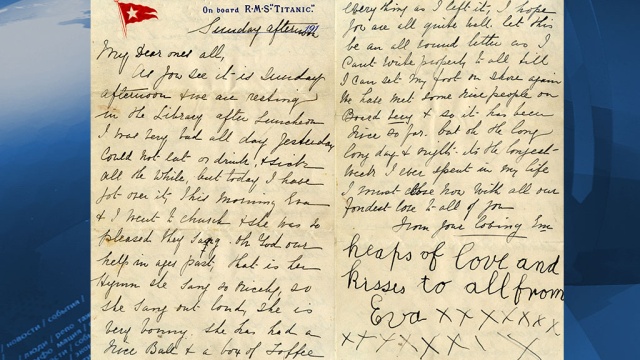 On board R·M·S "TITANIC."
Sunday afternoon
My Dear ones all,
As you see it is Sunday
afternoon & we are resting
in the Library after Luncheon
I was very bad all day Yesterday
Could not eat or drink, & sick
all the while, but today I have
got over it, This morning Eva
& I went to church & she was so
pleased they sang Oh God our
help in ages past, that is her
Hymn she sang so nicely, so
she sang out loud, she is
very bonny. She has had a
nice Ball & a box of Toffee
everything as I left it, I hope
you are all quite well. let this
be an all round letter as I
Can't write properly to all till
I can set my foot on shore again
We have met some nice people on
Board Lucy & so it has been
nice so far. but oh the long
long day & nights its the longest
Week I ever spent in my life
I must close Now with all our
fondest love to all of you
From your loving Em
heaps of love and
kisses to all from
Eva xxxxxxxx
xxxxxxx x
новости / события /